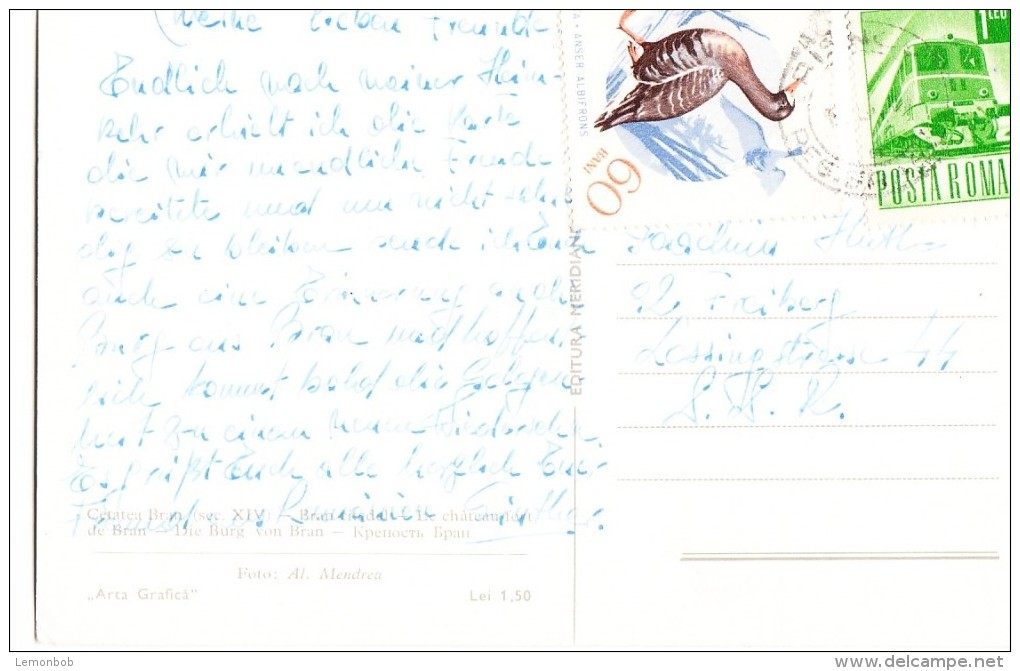 Meine lieben Freunde
Endlich nach meiner Heim-
kehr erhielt ich die Karte
die mir unendliche Freude
bereitete und um nicht schul
dig zu bleiben sende ich Euch
auch eine Erinnerung an die
Burg aus Bran und hoffen
lich kommt bald die Gelegen
heit zu einem neuen Wiedersehn.
Es grüßt Euch alle herzlich Eur
Rumänien Günther
Cetatea Bran (sec. XIV) — Bran — Le château fort
de Bran — Die Burg von Bran — Крепость Бран
Foto: Al. Mendrea
„Arta Grafică“ Lei 1,50
EDITURA MERIDIANE
ANSER ALBIFRONS
60 BANI
1 LEU
POSTA ROMA
Joachim
92 Freiberg
Lessingstrasse 44
D. D. R.
Lemonbob
www.delcampe.net